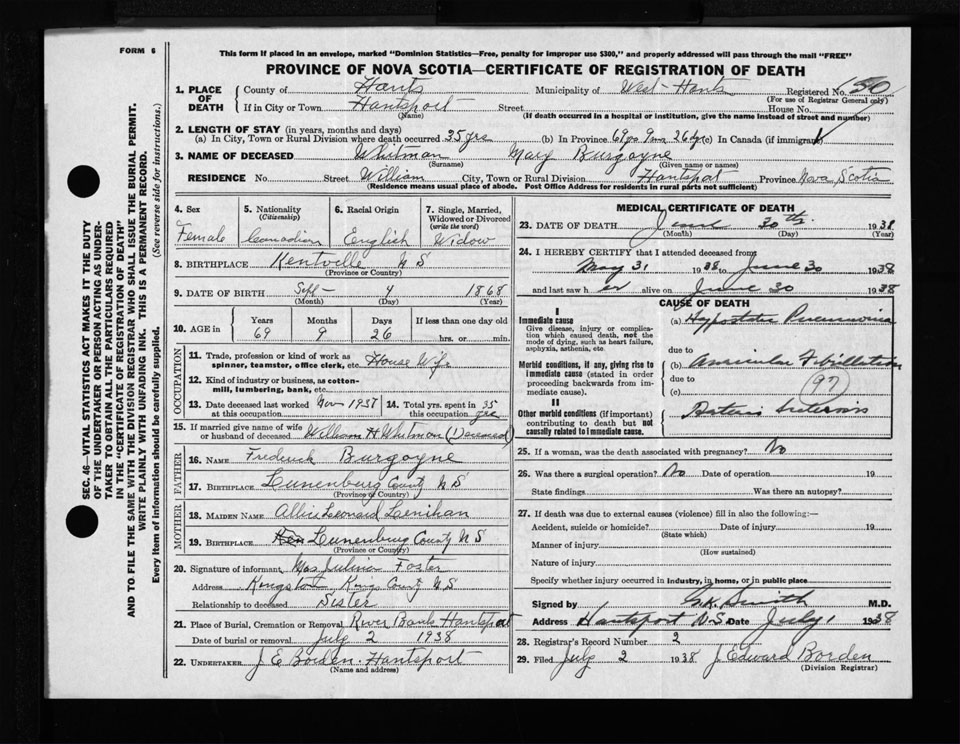 FORM 6
This form if placed in an envelope, marked "Dominion Statistics—Free, penalty for improper use $300," and properly addressed will pass through the mail "FREE"
PROVINCE OF NOVA SCOTIA—CERTIFICATE OF REGISTRATION OF DEATH
1. PLACE OF DEATH County of Hants Municipality of West-Hants Registered No. 150
(For use of Registrar General only)
If in City or Town Hantsport Street House No.
(Name) (If death occurred in a hospital or institution, give the name instead of street and number)
2. LENGTH OF STAY (in years, months and days)
(a) In City, Town or Rural Division where death occurred 35 yrs (b) In Province 69 yrs 9 mos 26 dys (c) In Canada (if immigrant)
3. NAME OF DECEASED Whitman Mary Burgoyne
(Surname) (Given name or names)
RESIDENCE No. Street William City, Town or Rural Division Hantsport Province Nova Scotia
(Residence means usual place of abode. Post Office Address for residents in rural parts not sufficient)
4. Sex 5. Nationality (Citizenship) 6. Racial Origin 7. Single, Married, Widowed or Divorced (write the word)
Female Canadian English Widow
8. BIRTHPLACE Kentville N S
(Province or Country)
9. DATE OF BIRTH Sept- 4 1868
(Month) (Day) (Year)
10. AGE in Years Months Days If less than one day old
69 9 26 hrs. or min.
OCCUPATION
11. Trade, profession or kind of work as spinner, teamster, office clerk, etc. House Wife
12. Kind of industry or business, as cotton-mill, lumbering, bank, etc.
13. Date deceased last worked at this occupation Nov 1937 14. Total yrs. spent in this occupation 35 yrs
15. If married give name of wife or husband of deceased William H Whitman (Deceased)
FATHER
16. NAME Frederick Burgoyne
17. BIRTHPLACE Lunenburg County N S
(Province or Country)
MOTHER
18. MAIDEN NAME Allie Leonard Lenihan
19. BIRTHPLACE Lunenburg County N S
(Province or Country)
20. Signature of informant Mrs Julina Foster
Address Kingston Kings County N S
Relationship to deceased Sister
21. Place of Burial, Cremation or Removal River Bank Hantsport
Date of burial or removal July 2 1938
22. UNDERTAKER J E Borden - Hantsport
(Name and address)
MEDICAL CERTIFICATE OF DEATH
23. DATE OF DEATH June 30th 1938
(Month) (Day) (Year)
24. I HEREBY CERTIFY that I attended deceased from
May 31 1938 to June 30 1938
and last saw her alive on June 30 1938
CAUSE OF DEATH
I
Immediate cause
Give disease, injury or complication which caused death, not the mode of dying, such as heart failure, asphyxia, asthenia, etc.
(a) Hypostatic Pneumonia
due to
Morbid conditions, if any, giving rise to immediate cause (stated in order proceeding backwards from immediate cause).
(b) Auricular Fibrillation
due to
(c)
97
II
Other morbid conditions (if important) contributing to death but not causally related to immediate cause.
25. If a woman, was the death associated with pregnancy? No
26. Was there a surgical operation? No Date of operation 19
State findings Was there an autopsy?
27. If death was due to external causes (violence) fill in also the following:—
Accident, suicide or homicide? Date of injury 19
(State which)
Manner of injury
(How sustained)
Nature of injury
Specify whether injury occurred in industry, in home, or in public place
Signed by G.K. Smith M.D.
Address Hantsport N.S. Date July 1 1938
28. Registrar's Record Number 2
29. Filed July 2 1938 J. Edward Borden
(Division Registrar)
SEC. 46—VITAL STATISTICS ACT MAKES IT THE DUTY
OF THE UNDERTAKER OR PERSON ACTING AS UNDER-
TAKER TO OBTAIN ALL THE PARTICULARS REQUIRED
IN THE "CERTIFICATE OF REGISTRATION OF DEATH"
AND TO FILE THE SAME WITH THE DIVISION REGISTRAR WHO SHALL ISSUE THE BURIAL PERMIT.
WRITE PLAINLY WITH UNFADING INK. THIS IS A PERMANENT RECORD.
Every item of information should be carefully supplied. (See reverse side for instructions.)